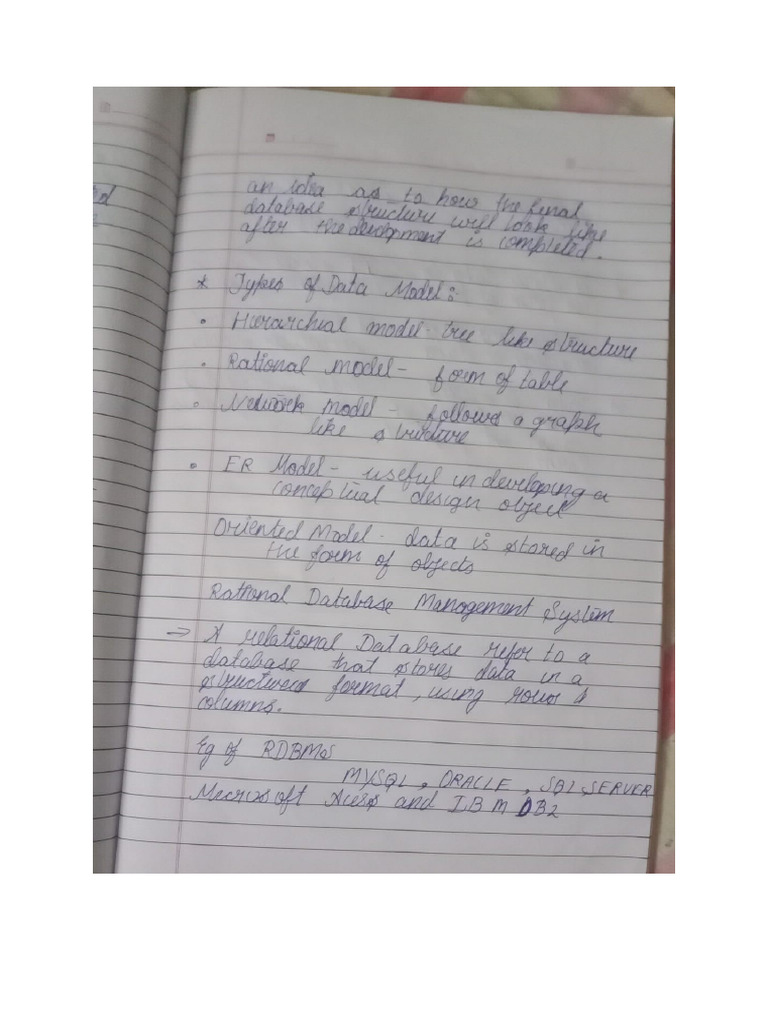 an idea as to how the final
database structure will look like
after the development is completed.
* Types of Data Model :
• Hierarchial model - tree like structure
• Rational model - form of table
• Network Model - follows a graph
like structure
• ER Model - useful in developing a
conceptual design object
Oriented Model - data is stored in
the form of objects
Rational Database Management System
→ A relational Database refer to a
database that stores data in a
structured format, using rows &
columns.
Eg of RDBMS
MYSQL, ORACLE, SQL SERVER
Microsoft Acess and IBM DB2